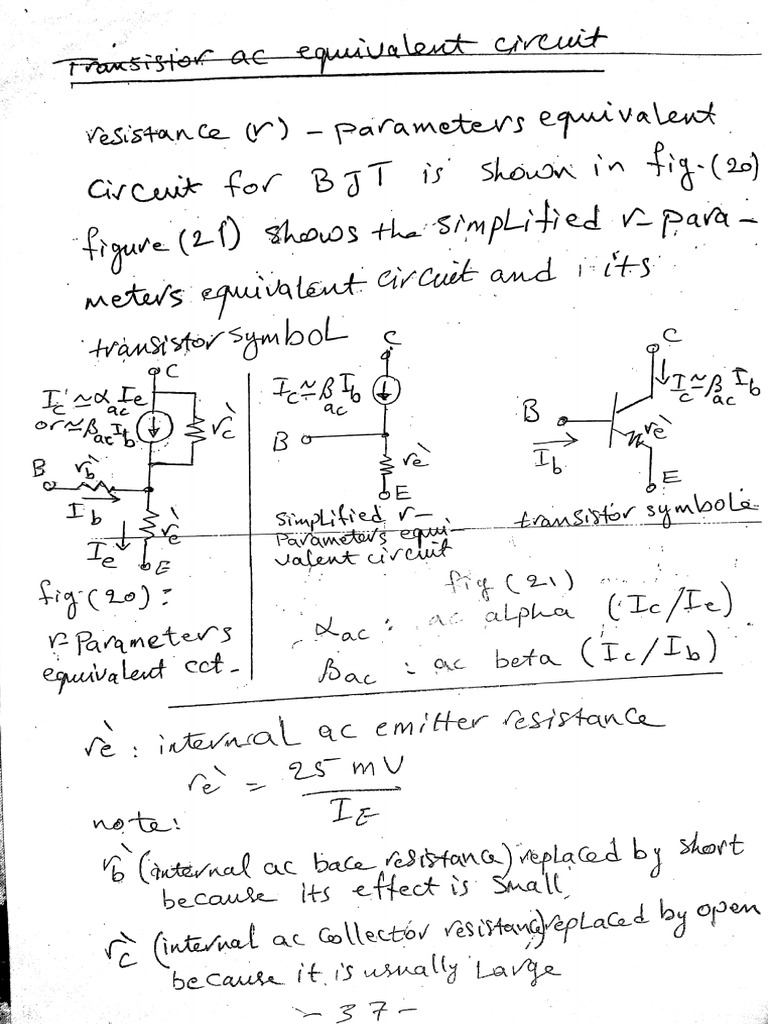 Transistor ac equivalent circuit
resistance (r) - parameters equivalent
circuit for BJT is shown in fig.(20)
figure (21) shows the simplified r-para-
meters equivalent circuit and its
transistor symbol
C
Ic ≃ αac Ie
or ≃ βac Ib
rc'
B
rb'
Ib
re'
Ie
E
fig.(20):
r-Parameters
equivalent cct.
C
Ic ≃ βac Ib
B
re'
E
simplified r-
Parameters equi-
valent circuit
C
Ic ≃ βac Ib
B
Ib
re'
E
transistor symbole
fig (21)
αac : ac alpha (Ic/Ie)
βac : ac beta (Ic/Ib)
re' : internal ac emitter resistance
re' = 25 mV / IE
note:
rb' (internal ac bace resistance) replaced by short
because its effect is small
rc' (internal ac collector resistance) replaced by open
because it is usually Large
- 37 -